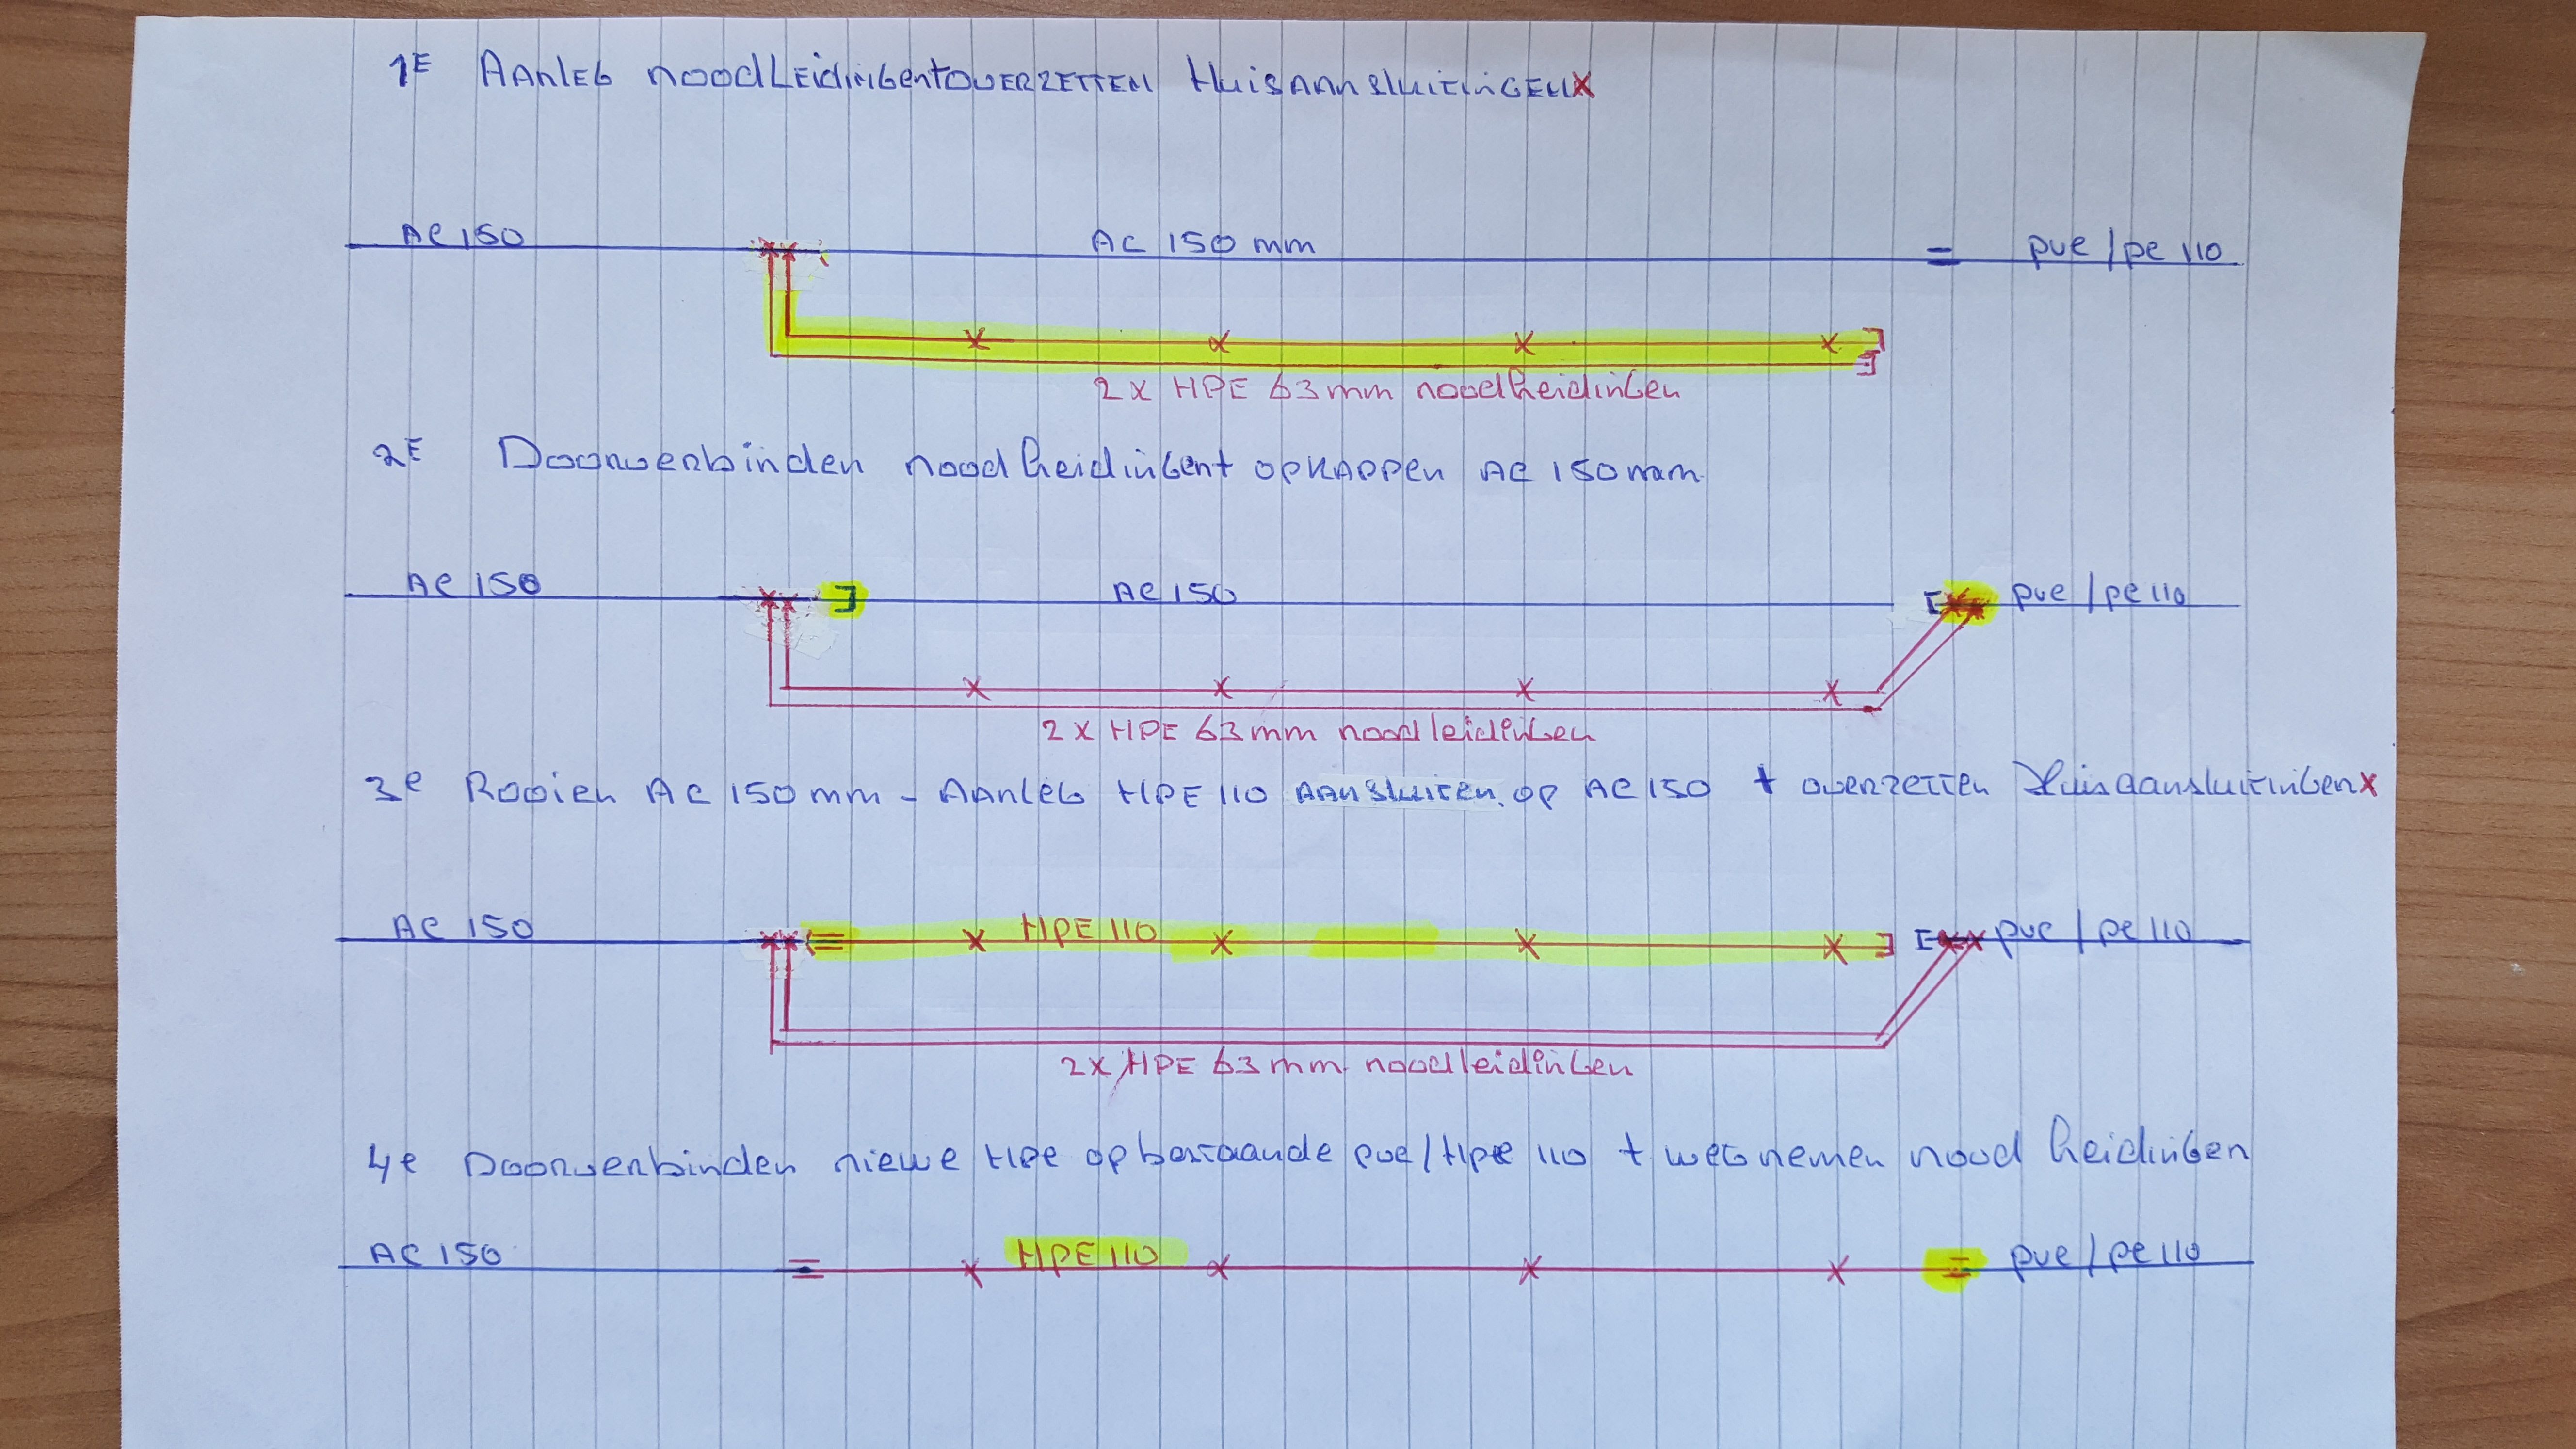 1E AANLEG noodLEidingen+OVERZETTEN HuisAAnsluitingen X
AC 150 AC 150 mm = pvc/pe 110
2 x HPE 63 mm noodleidingen
2E Doorverbinden noodleidingen+ opkappen AC 150 mm
AC 150 AC 150 pvc/pe 110
2 x HPE 63 mm noodleidingen
3e Rooien AC 150 mm - AANLEG HPE 110 AANSLUITEN op AC 150 + overzetten Huisaansluitingen X
AC 150 HPE 110 pvc/pe 110
2 x HPE 63 mm noodleidingen
4e Doorverbinden niewe HPe op bestaande pvc/Hpe 110 + wegnemen nood leidingen
AC 150 HPE 110 pvc/pe 110